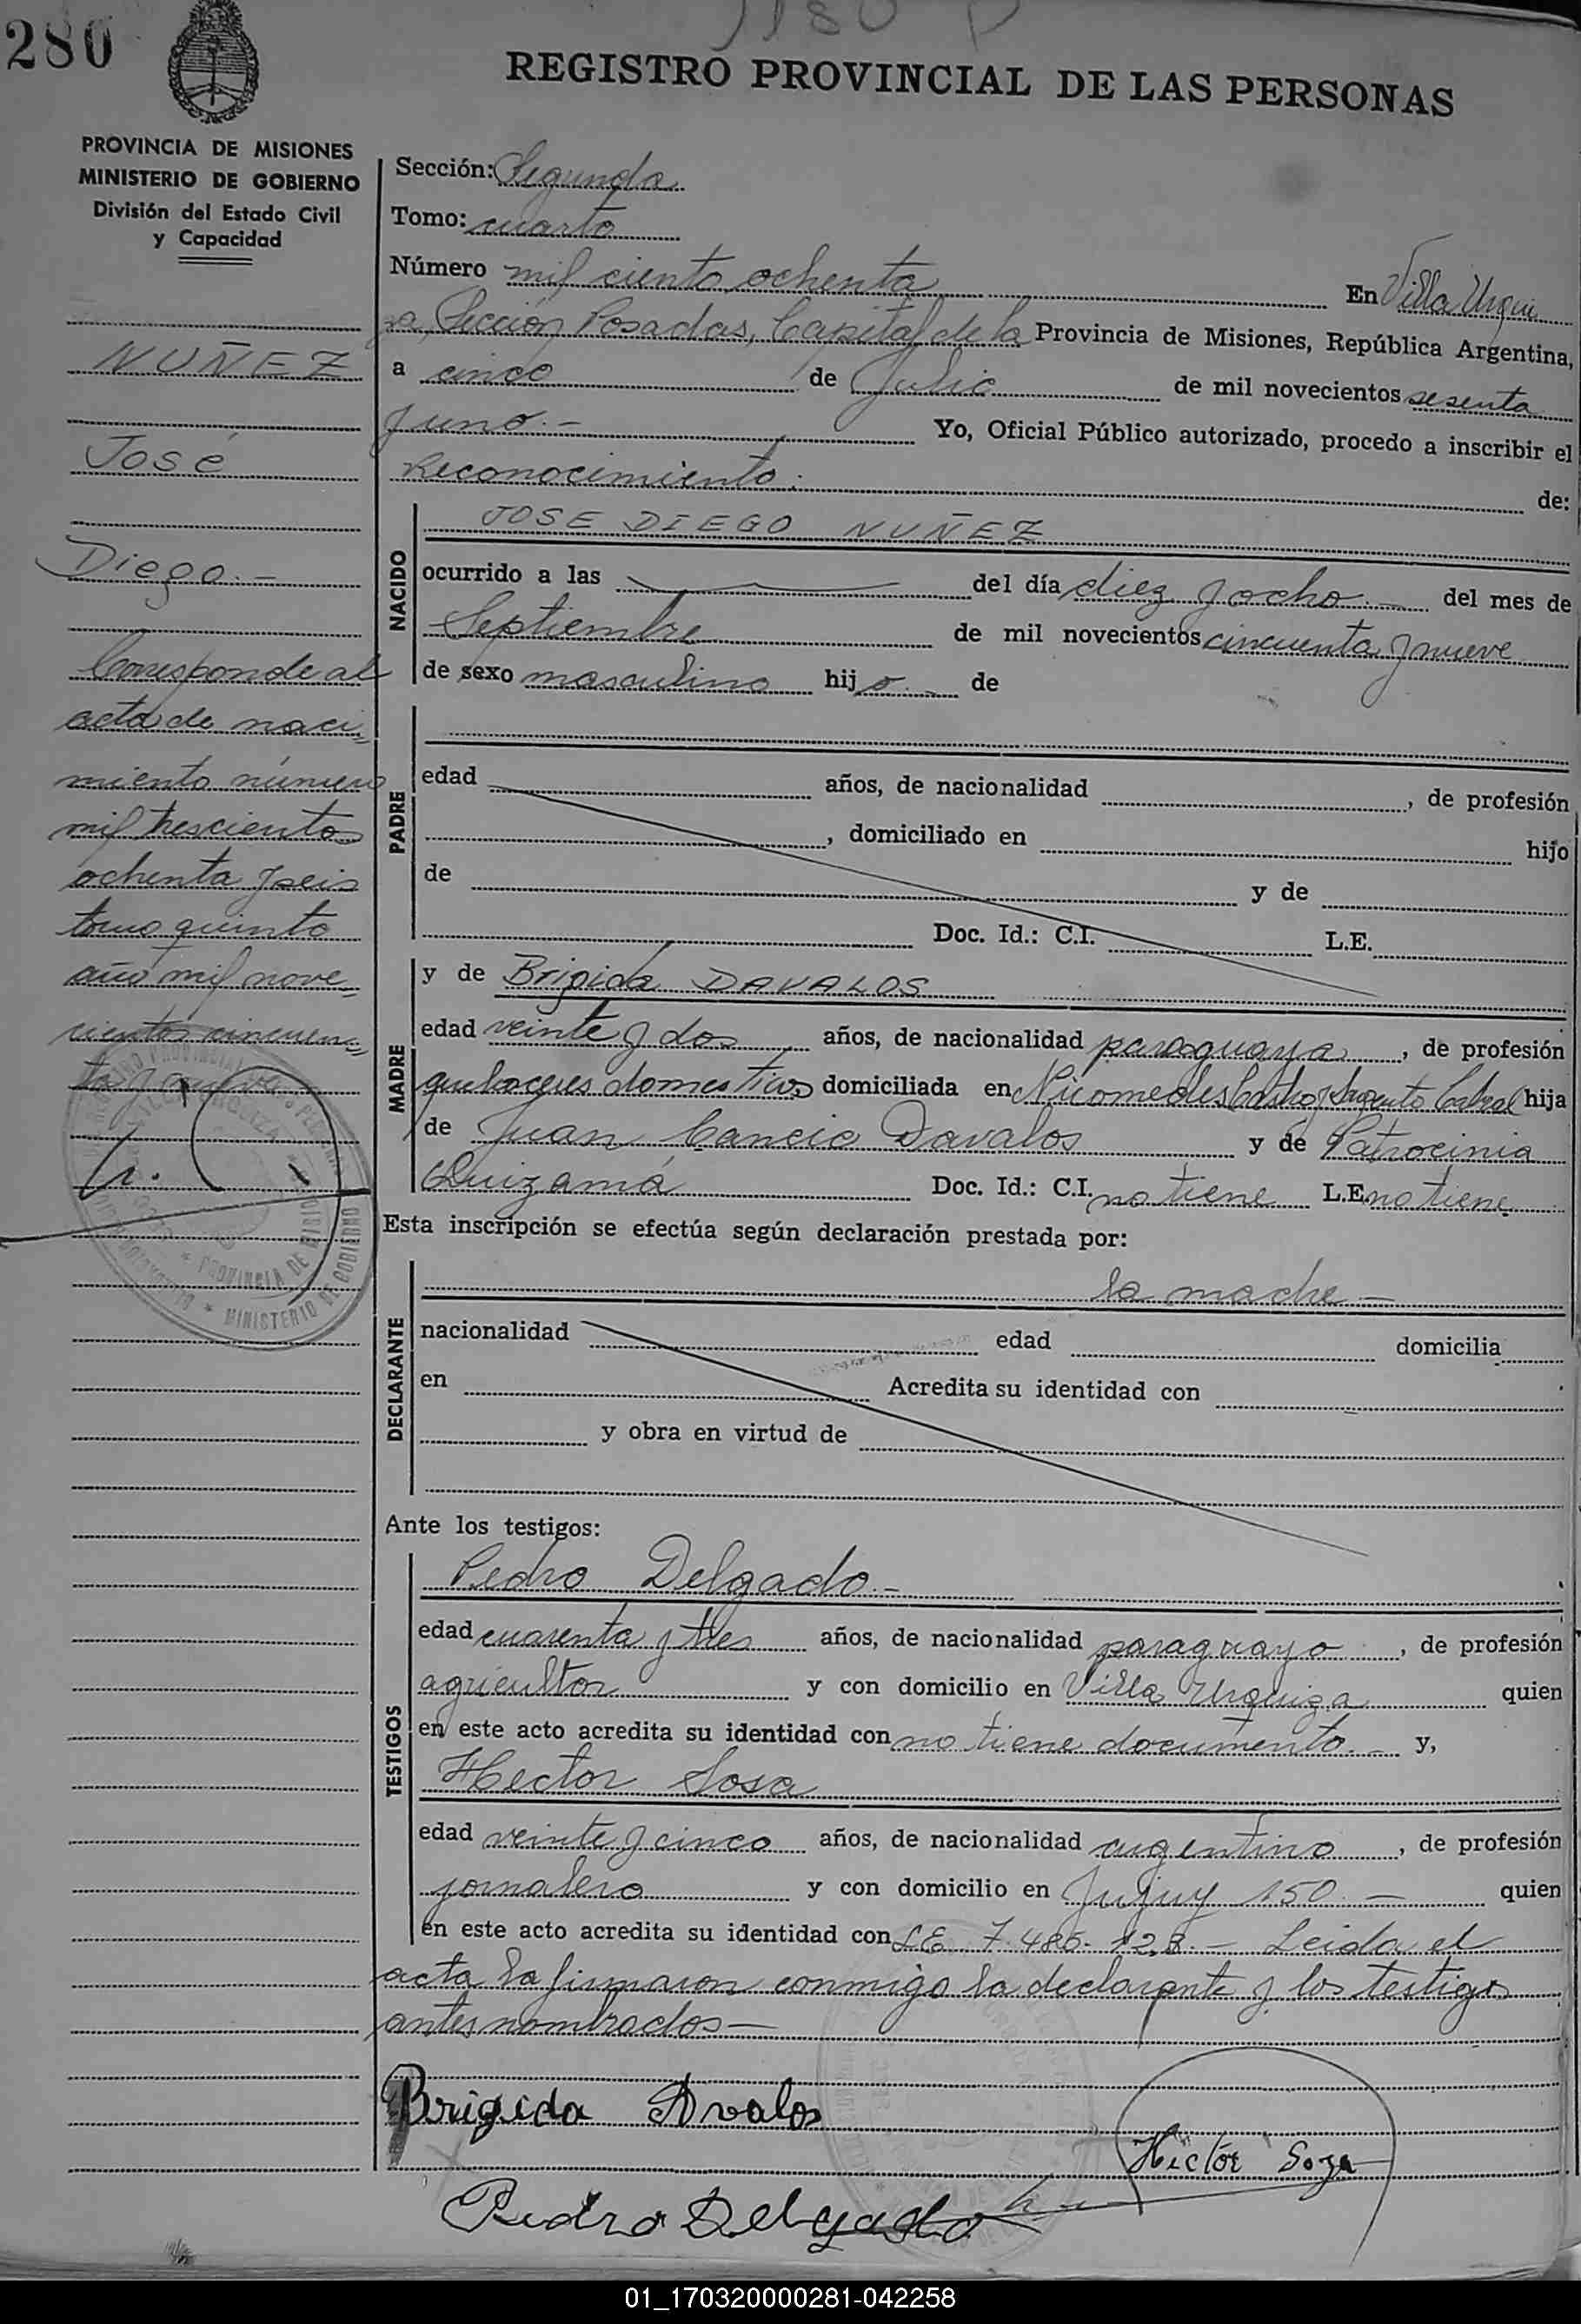 1180 P
280
REGISTRO PROVINCIAL DE LAS PERSONAS
PROVINCIA DE MISIONES
MINISTERIO DE GOBIERNO
División del Estado Civil
y Capacidad
NUÑEZ
José
Diego.-
Corresponde al
acta de naci
miento número
mil trescientos
ochenta y seis
tomo quinto
año mil nove
cientos cincuen
ta y nueve
Sección: Segunda
Tomo: cuarto
Número mil ciento ochenta En Villa Urqui
za, Sección Posadas, Capital de la Provincia de Misiones, República Argentina,
a cinco de Julio de mil novecientos sesenta
y uno.- Yo, Oficial Público autorizado, procedo a inscribir el
Reconocimiento. de:
NACIDO
JOSE DIEGO NUÑEZ
ocurrido a las del día diez y ocho.- del mes de
Septiembre de mil novecientos cincuenta y nueve
de sexo masculino hijo.- de
PADRE
edad años, de nacionalidad , de profesión
, domiciliado en hijo
de y de
Doc. Id.: C.I. L.E.
MADRE
y de Brigida DAVALOS
edad veinte y dos años, de nacionalidad paraguaya, de profesión
quehaceres domesticos domiciliada en Nicomedes Castro y Sargento Cabral hija
de Juan Cancio Davalos y de Patrocinia
Quizamá Doc. Id.: C.I. no tiene L.E. no tiene
Esta inscripción se efectúa según declaración prestada por:
DECLARANTE
la madre -
nacionalidad edad domicilia
en Acredita su identidad con
y obra en virtud de
Ante los testigos:
TESTIGOS
Pedro Delgado.-
edad cuarenta y tres años, de nacionalidad paraguayo, de profesión
agricultor y con domicilio en Villa Urquiza quien
en este acto acredita su identidad con no tiene documento.- y,
Hector Sosa
edad veinte y cinco años, de nacionalidad argentino, de profesión
jornalero y con domicilio en Jujuy 150.- quien
en este acto acredita su identidad con LE 7.485.128.- Leida el
acta la firmaron conmigo la declarante y los testigos
antes nombrados-
Brigida Avalos
Hectór Soza
Pedro Delgado
MINISTERIO DE GOBIERNO
PROVINCIA DE MISIONES
01_170320000281-042258